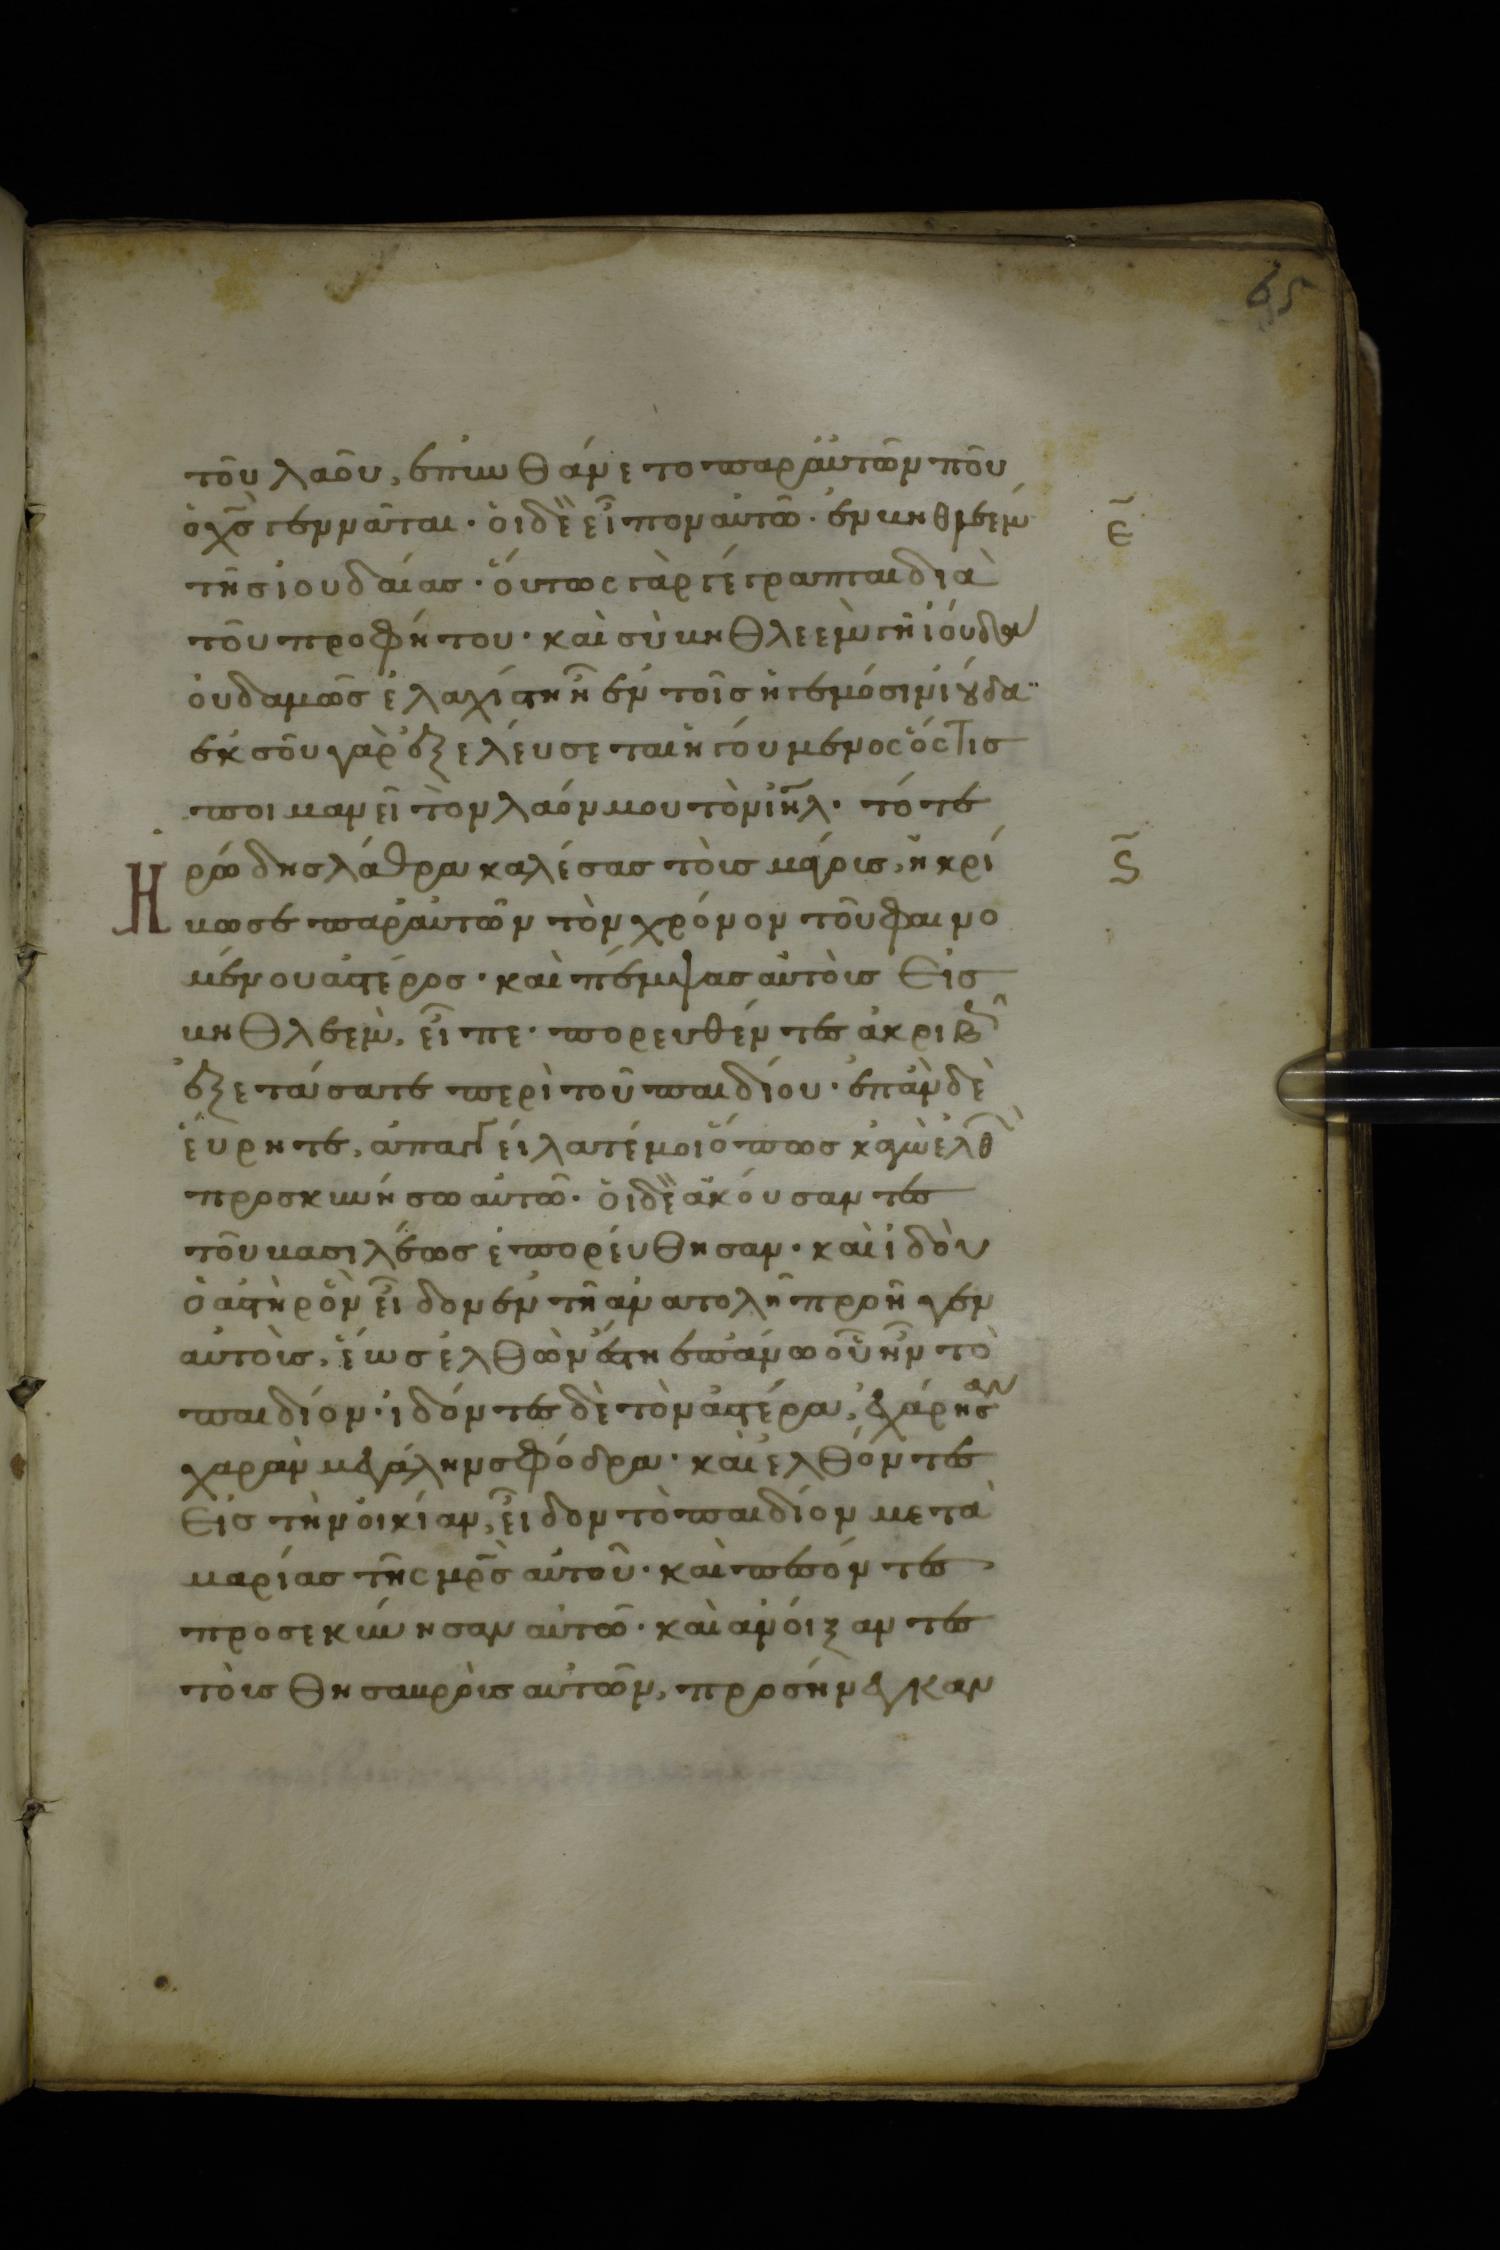 65
τοῦ λαοῦ, ἐπυνθάνετο παρ' αὐτῶν ποῦ
ὁ χς γεννᾶται· οἱ δὲ εἶπον αὐτῶ· ἐν βηθλεὲμ
ε
τῆς ἰουδαίας· οὕτως γὰρ γέγραπται διὰ
τοῦ προφήτου· καὶ σὺ βηθλεὲμ γῆ ἰούδα
οὐδαμῶς ἐλαχίστη ἦ ἐν τοῖς ἡγεμόσιν ἰούδα
ἐκ σοῦ γὰρ ἐξελεύσεται ἡγούμενος ὅστις
ποιμανεῖ τὸν λαόν μου τὸν ιηλ· τότε
Ηρώδης λάθρα καλέσας τοὺς μάγους, ἠκρί
ς
βωσε παρ' αὐτῶν τὸν χρόνον τοῦ φαινο
μένου ἀστέρος· καὶ πέμψας αὐτοὺς εἰς
βηθλεὲμ, εἶπε· πορευθέντες ἀκριβῶς
ἐξετάσατε περὶ τοῦ παιδίου· ἐπὰν δὲ
εὕρητε, ἀπαγγείλατέ μοι ὅπως κἀγὼ ἐλθὼν
προσκυνήσω αὐτῶ· οἱ δὲ ἀκούσαντες
τοῦ βασιλέως ἐπορεύθησαν· καὶ ἰδοὺ
ὁ ἀστὴρ ὃν εἶδον ἐν τῆ ἀνατολῆ προῆγεν
αὐτοὺς, ἕως ἐλθὼν ἔστη ἐπάνω οὗ ἦν τὸ
παιδίον· ἰδόντες δὲ τὸν ἀστέρα, ἐχάρησαν
χαρὰν μεγάλην σφόδρα· καὶ ἐλθόντες
εἰς τὴν οἰκίαν, εἶδον τὸ παιδίον μετὰ
μαρίας τῆς μρς αὐτοῦ· καὶ πεσόντες
προσεκύνησαν αὐτῶ· καὶ ἀνοίξαντες
τοὺς θησαυροὺς αὐτῶν, προσήνεγκαν